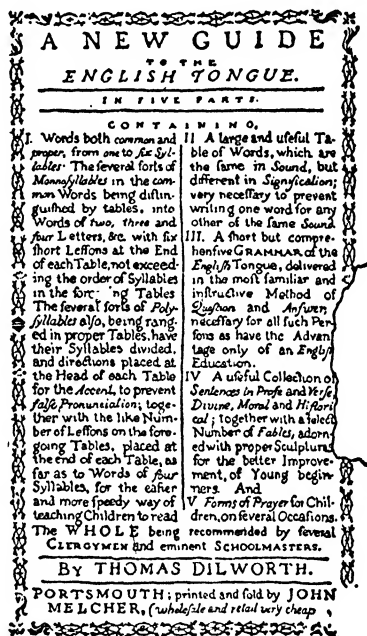 A NEW GUIDE
TO THE
ENGLISH TONGUE.
IN FIVE PARTS.
CONTAINING,
I. Words both common and
proper, from one to ſix Syl-
lables. The ſeveral ſorts of
Monoſyllables in the com-
mon Words being diſtin-
guiſhed by tables, into
Words of two, three and
four Letters, &c. with ſix
ſhort Leſſons at the End
of each Table, not exceed-
ing the order of Syllables
in the ng Tables
The ſeveral ſorts of Poly-
ſyllables alſo, being rang-
ed in proper Tables, have
their Syllables divided,
and directions placed at
the Head of each Table
for the Accent, to prevent
falſe Pronunciation; toge-
ther with the like Num-
ber of Leſſons on the fore-
going Tables, placed at
the end of each Table, as
far as to Words of four
Syllables, for the eaſier
and more ſpeedy way of
teaching Children to read
II A large and uſeful Ta-
ble of Words, which are
the ſame in Sound, but
different in Signification;
very neceſſary to prevent
writing one word for any
other of the ſame Sound
III. A ſhort but compre-
henſive GRAMMAR of the
Engliſh Tongue, delivered
in the moſt familiar and
inſtructive Method of
Queſtion and Anſwer,
neceſſary for all ſuch Per-
ſons as have the Advan
tage only of an Engliſh
Education.
IV A uſeful Collection of
Sentences in Proſe and Verſe,
Divine, Moral and Hiſtori
cal; together with a ſelect
Number of Fables, adorn-
ed with proper Sculptures
for the better Improve-
ment, of Young begin-
ners. And
V Forms of Prayer for Chil-
dren, on ſeveral Occaſions.
The WHOLE being recommended by ſeveral
CLERGYMEN and eminent SCHOOLMASTERS.
BY THOMAS DILWORTH.
PORTSMOUTH; printed and ſold by JOHN
MELCHER, (wholeſale and retail very cheap